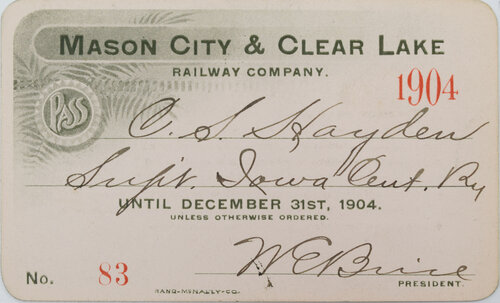 MASON CITY & CLEAR LAKE
RAILWAY COMPANY.
1904
PASS
C. S. Hayden
Supt. Iowa Cent. Ry
UNTIL DECEMBER 31ST, 1904.
UNLESS OTHERWISE ORDERED.
W E Brice
PRESIDENT.
No. 83
RAND-MCNALLY-CO.